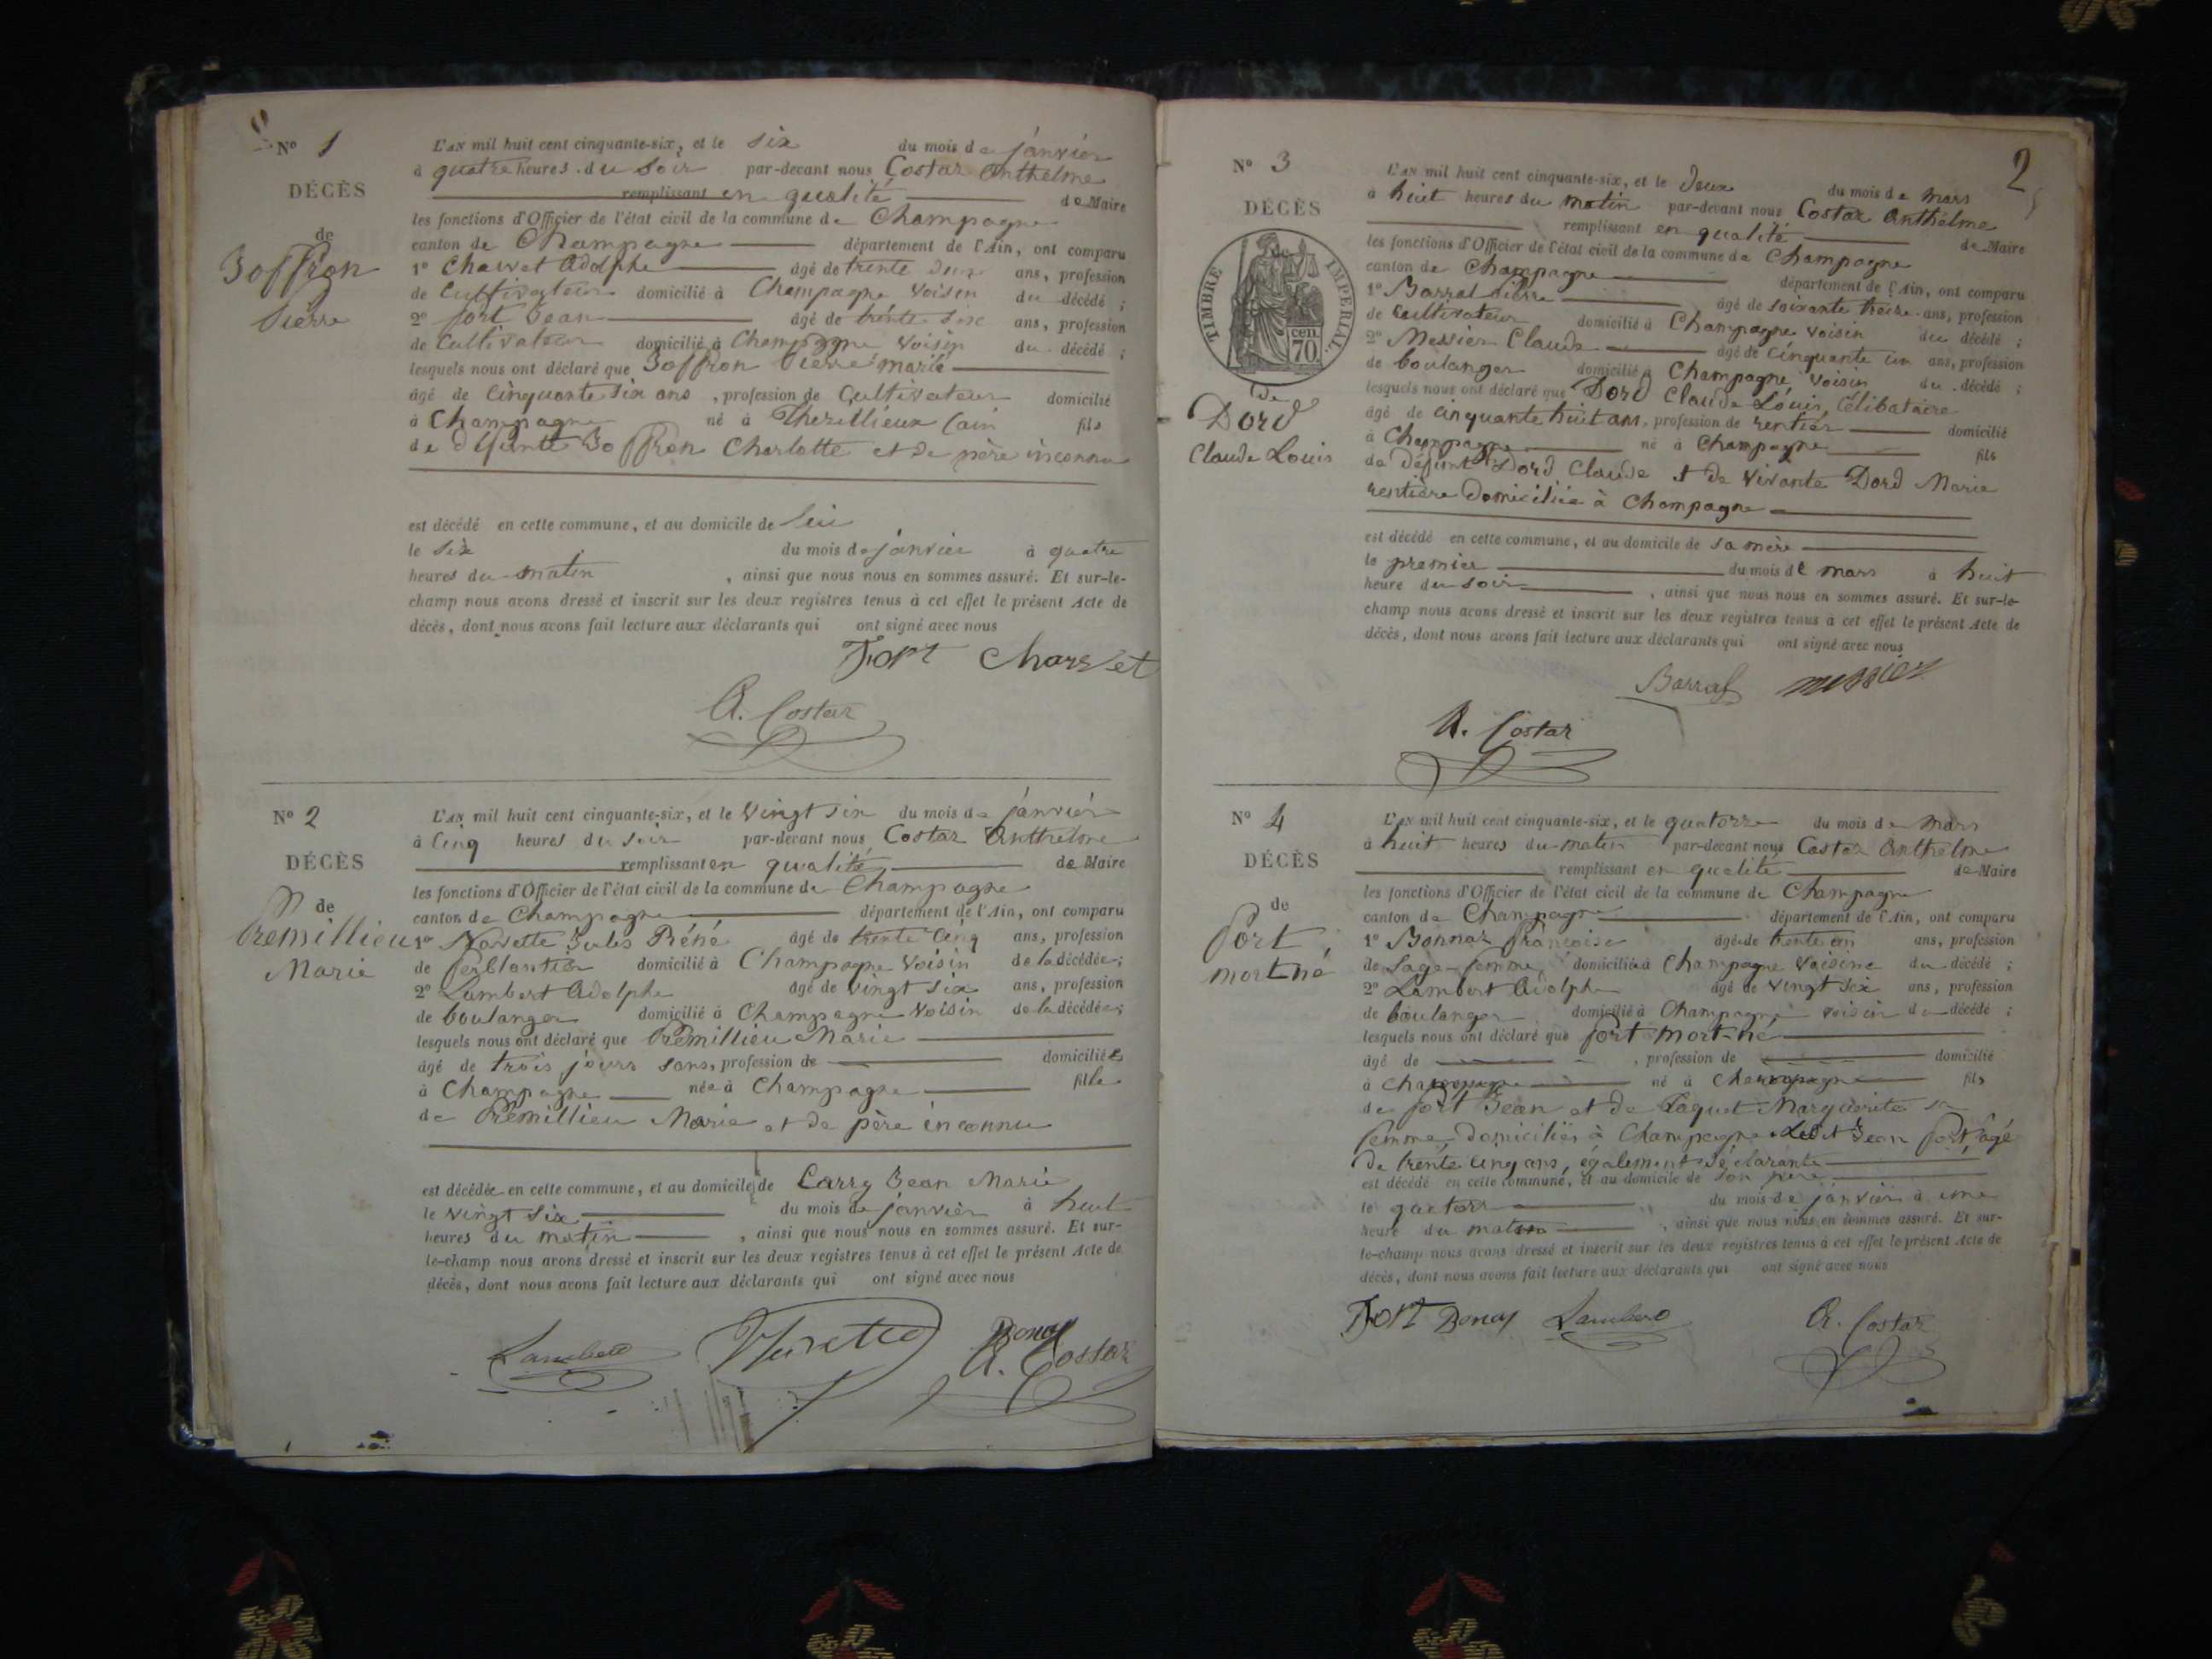 Nº 1
DÉCÈS
de
Joffron
Pierre
L'AN mil huit cent cinquante-six, et le six du mois de janvier
à quatre heures du soir par-devant nous Costaz Anthelme
remplissant en qualité de Maire
les fonctions d'Officier de l'état civil de la commune de Champagne
canton de Champagne département de l'Ain, ont comparu
1º Charvet Adolphe âgé de trente deux ans, profession
de Cultivateur domicilié à Champagne voisin du décédé ;
2º fort Jean âgé de trente six ans, profession
de Cultivateur domicilié à Champagne voisin du décédé ;
lesquels nous ont déclaré que Joffron Pierre marie
âgé de Cinquante six ans, profession de Cultivateur domicilié
à Champagne né à Thezillieux (ain fils
de défunte Joffron Charlotte et de père inconnu
est décédé en cette commune, et au domicile de lui
le six du mois de janvier à quatre
heures du matin, ainsi que nous nous en sommes assuré. Et sur-le-
champ nous avons dressé et inscrit sur les deux registres tenus à cet effet le présent Acte de
décès, dont nous avons fait lecture aux déclarants qui ont signé avec nous
Fort Charvet
A. Costaz
Nº 2
DÉCÈS
de
Premillieu
Marie
L'AN mil huit cent cinquante-six, et le vingt six du mois de janvier
à Cinq heures du soir par-devant nous Costaz Anthelme
remplissant en qualité de Maire
les fonctions d'Officier de l'état civil de la commune de Champagne
canton de Champagne département de l'Ain, ont comparu
1º Navette Jules Réné âgé de trente cinq ans, profession
de ferblantier domicilié à Champagne voisin de la décédée ;
2º Lambert Adolphe âgé de vingt six ans, profession
de boulanger domicilié à Champagne voisin de la décédée ;
lesquels nous ont déclaré que Prémillieu Marie
âgé de trois jours sans, profession de domiciliée
à Champagne née à Champagne fille
de Prémillieu Marie et de père inconnu
est décédée en cette commune, et au domicile de Carry Jean Marie
le vingt six du mois de janvier à huit
heures du matin, ainsi que nous nous en sommes assuré. Et sur-
le-champ nous avons dressé et inscrit sur les deux registres tenus à cet effet le présent Acte de
décès, dont nous avons fait lecture aux déclarants qui ont signé avec nous
Lambert
A. Costaz
2
Nº 3
DÉCÈS
TIMBRE IMPERIAL
70 cen
de
Dord
Claude Louis
L'AN mil huit cent cinquante-six, et le deux du mois de mars
à huit heures du matin par-devant nous Costaz Anthelme
remplissant en qualité de Maire
les fonctions d'Officier de l'état civil de la commune de Champagne
canton de Champagne département de l'Ain, ont comparu
1º Barral Pierre âgé de soixante treize ans, profession
de Cultivateur domicilié à Champagne voisin du décédé ;
2º Messier Claude âgé de cinquante un ans, profession
de boulanger domicilié à Champagne voisin du décédé ;
lesquels nous ont déclaré que Dord Claude Louis, Célibataire
âgé de cinquante huit ans, profession de rentier domicilié
à Champagne né à Champagne fils
de défunt Dord Claude et de vivante Dord Marie
rentière domiciliée à Champagne
est décédé en cette commune, et au domicile de sa mère
le premier du mois de mars à huit
heure du soir, ainsi que nous nous en sommes assuré. Et sur-le-
champ nous avons dressé et inscrit sur les deux registres tenus à cet effet le présent Acte de
décès, dont nous avons fait lecture aux déclarants qui ont signé avec nous
Barral messier
A. Costaz
Nº 4
DÉCÈS
de
fort
mort-né
L'AN mil huit cent cinquante-six, et le quatorze du mois de mars
à huit heures du matin par-devant nous Costaz Anthelme
remplissant en qualité de Maire
les fonctions d'Officier de l'état civil de la commune de Champagne
canton de Champagne département de l'Ain, ont comparu
1º Bonnaz françoise âgé de trente un ans, profession
de Sage-femme, domiciliée à Champagne voisine du décédé ;
2º Lambert Adolphe âgé de vingt six ans, profession
de boulanger domicilié à Champagne voisin du décédé ;
lesquels nous ont déclaré que fort mort-né
âgé de, profession de domicilié
à Champagne né à Champagne fils
de fort Jean et de Paquet Marguerite sa
femme, domiciliés à Champagne Ledit Jean fort, âgé
de trente cinq ans, également déclarant
est décédé en cette commune, et au domicile de son père
le quatorze du mois de janvier à une
heure du matin, ainsi que nous nous en sommes assuré. Et sur-
le-champ nous avons dressé et inscrit sur les deux registres tenus à cet effet le présent Acte de
décès, dont nous avons fait lecture aux déclarants qui ont signé avec nous
Fort Bonaz Lambert A. Costaz